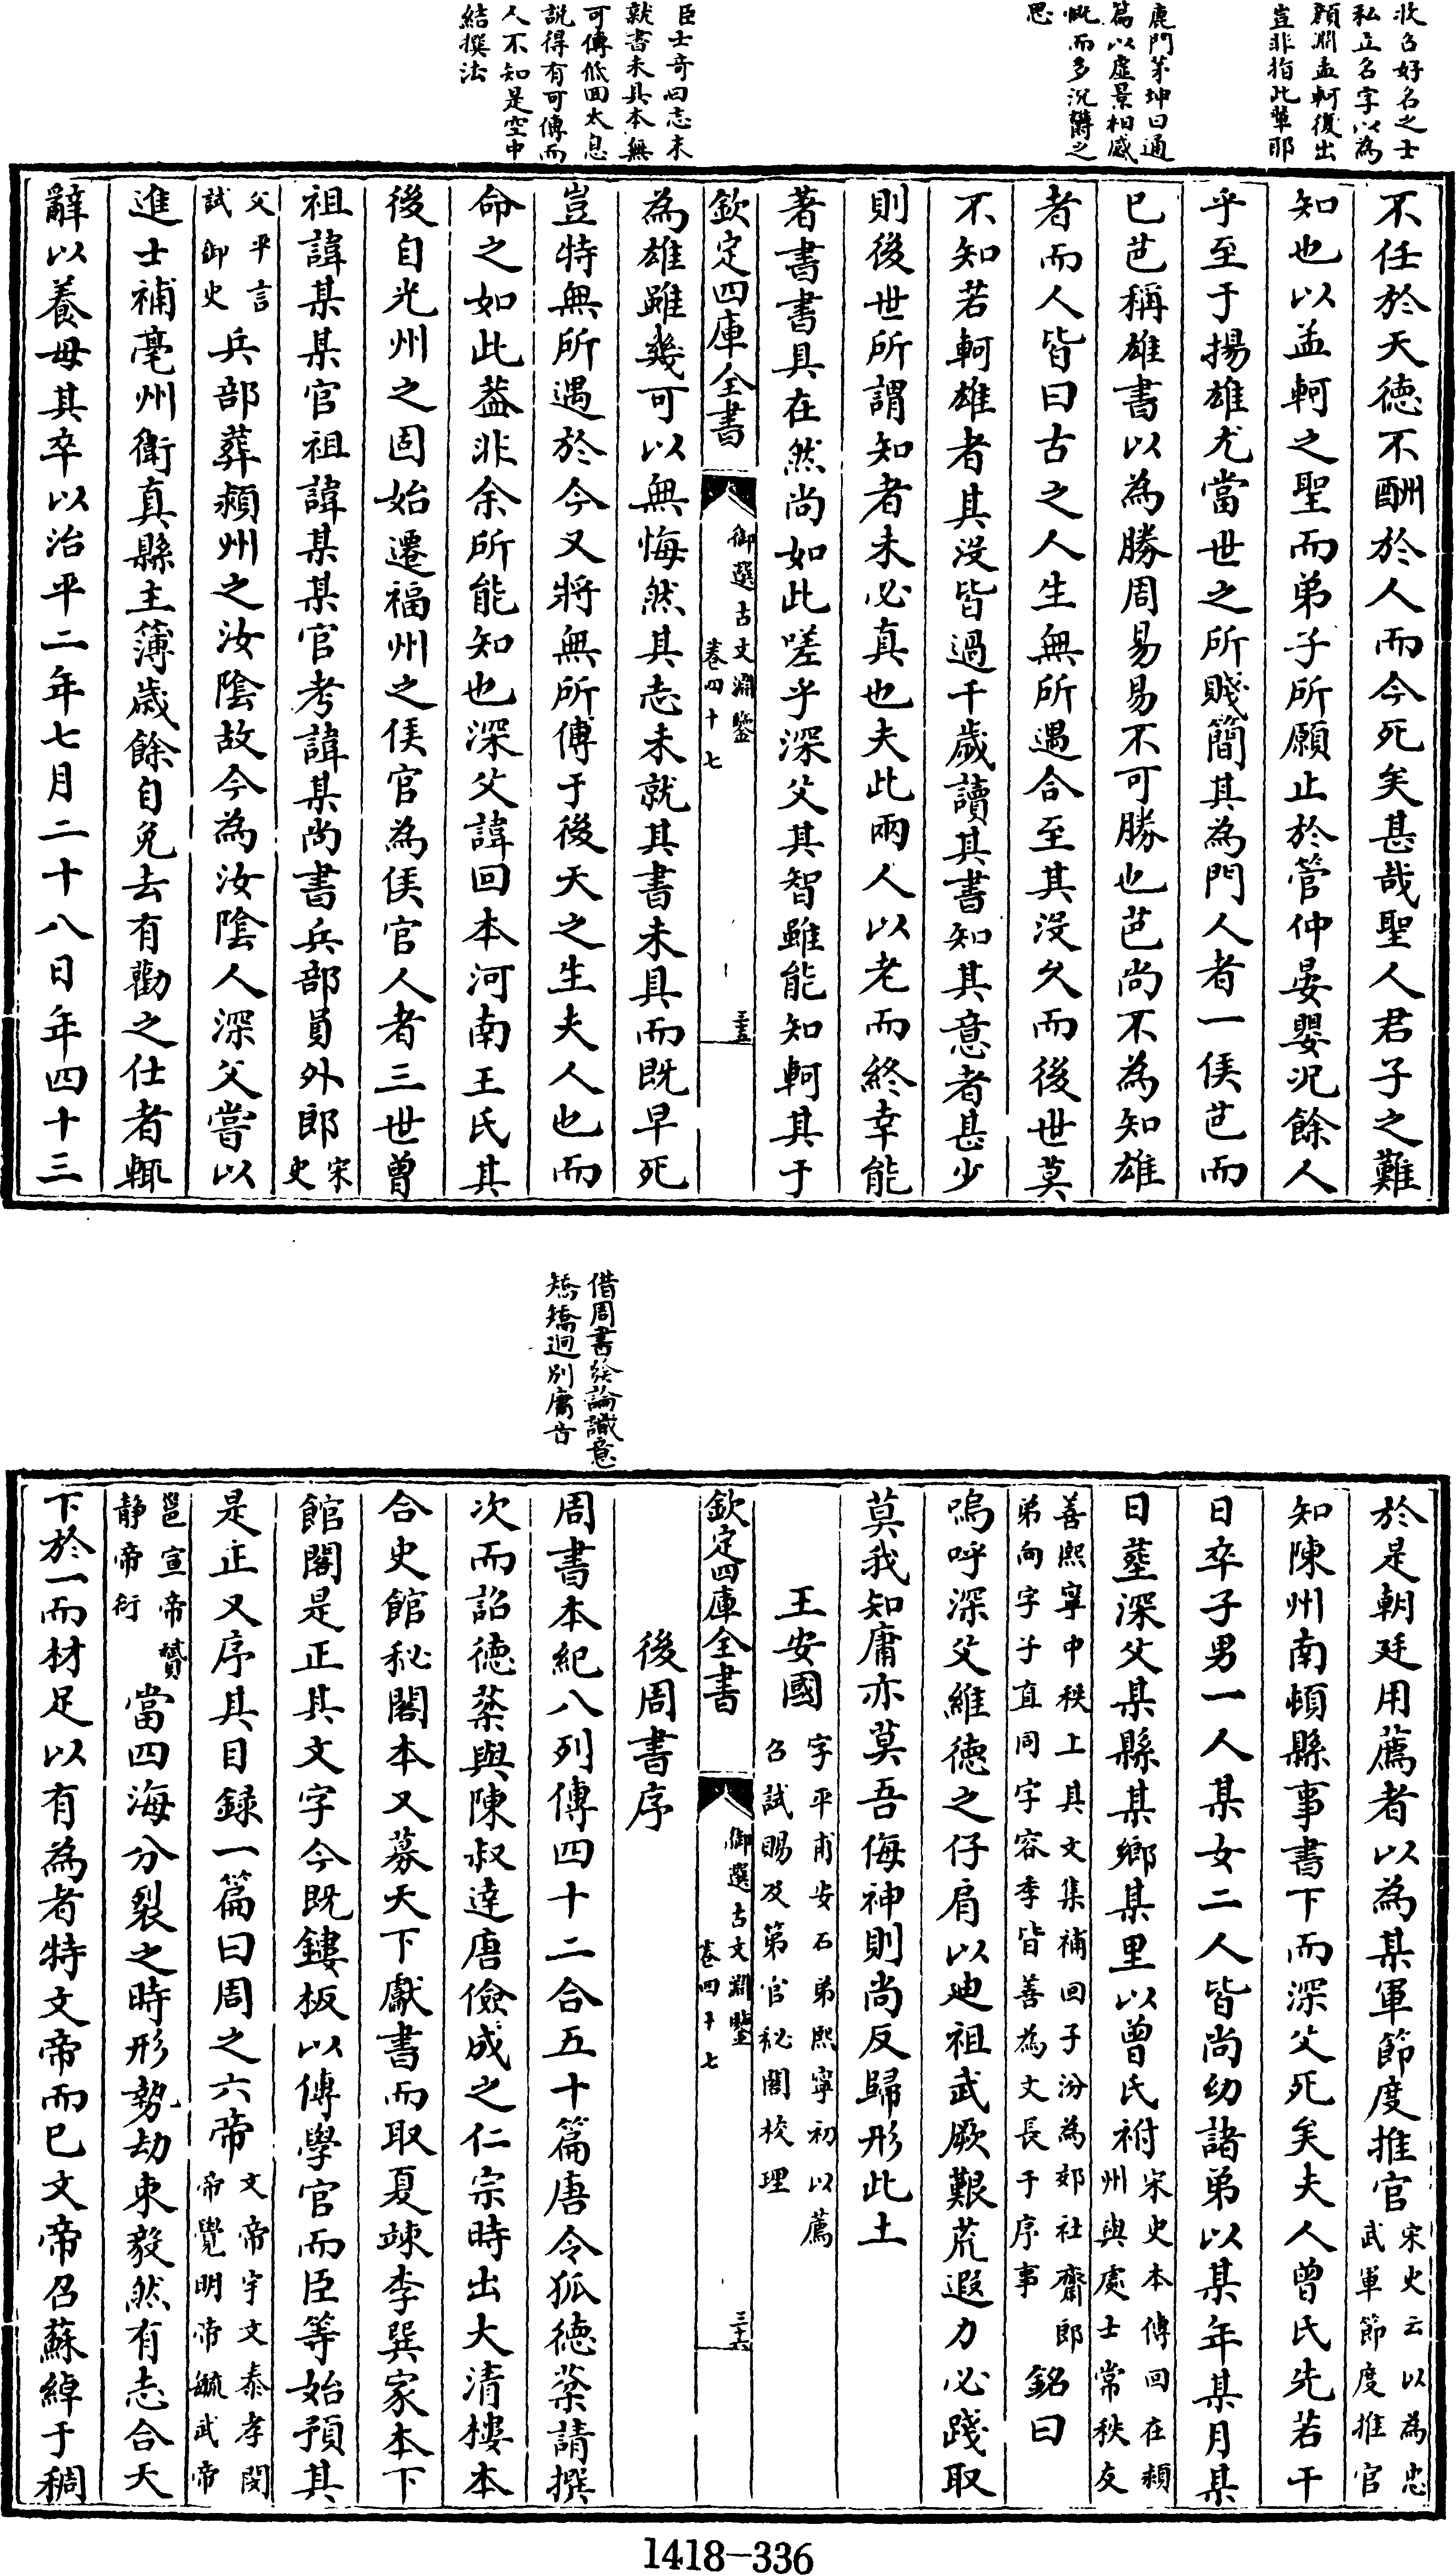 狀名好名之士
私立名字以為
顏淵孟軻復出
豈非指此輩耶
鹿門茅坤曰通
篇以虛景相感
慨而多沉鬱之
思
臣士奇曰志未
就書未具本無
可傳低回太息
說得有可傳而
人不知是空中
結撰法
不任於天德不酬於人而今死矣甚哉聖人君子之難
知也以孟軻之聖而弟子所願止於管仲晏嬰況餘人
乎至于揚雄尤當世之所賤簡其為門人者一侯芭而
已芭稱雄書以為勝周易易不可勝也芭尚不為知雄
者而人皆曰古之人生無所遇合至其沒久而後世莫
不知若軻雄者其沒皆過千歲讀其書知其意者甚少
則後世所謂知者未必真也夫此兩人以老而終幸能
著書書具在然尚如此嗟乎深父其智雖能知軻其于
欽定四庫全書
御選古文淵鑒
卷四十七
三十五
為雄雖幾可以無悔然其志未就其書未具而既早死
豈特無所遇於今又將無所傳于後天之生夫人也而
命之如此蓋非余所能知也深父諱回本河南王氏其
後自光州之固始遷福州之侯官為侯官人者三世曾
祖諱某某官祖諱某某官考諱某尚書兵部員外郎宋史
父平言試御史兵部葬潁州之汝陰故今為汝陰人深父嘗以
進士補亳州衛真縣主簿歲餘自免去有勸之仕者輒
辭以養母其卒以治平二年七月二十八日年四十三
借周書綜論識意
矯矯迥別庸音
於是朝廷用薦者以為某軍節度推官宋史云以為忠武軍節度推官
知陳州南頓縣事書下而深父死矣夫人曾氏先若干
日卒子男一人某女二人皆尚幼諸弟以某年某月某
日葬深父某縣某鄉某里以曾氏祔宋史本傳回在潁州與處士常秩友
善熙寧中秩上其文集補回子汾為郊社齋郎弟向字子直同字容季皆善為文長于序事銘曰
嗚呼深父維德之仔肩以迪祖武厥艱荒遐力必踐取
莫我知庸亦莫吾侮神則尚反歸形此土
王安國字平甫安石弟熙寧初以薦召試賜及第官秘閣校理
欽定四庫全書
御選古文淵鑒
卷四十七
三十六
後周書序
周書本紀八列傳四十二合五十篇唐令狐德棻請撰
次而詔德棻與陳叔達唐儉成之仁宗時出大清樓本
合史館秘閣本又募天下獻書而取夏竦李巽家本下
館閣是正其文字今既鏤板以傳學官而臣等始預其
是正又序其目錄一篇曰周之六帝文帝宇文泰孝閔帝覺明帝毓武帝
邕宣帝贇靜帝衍當四海分裂之時形勢劫束毅然有志合天
下於一而材足以有為者特文帝而已文帝召蘇綽于稠
1418-336